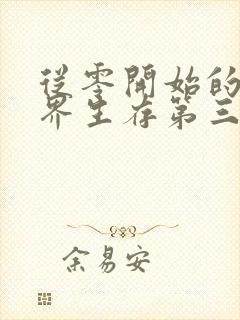 從零開始的
界生存第三
余易安